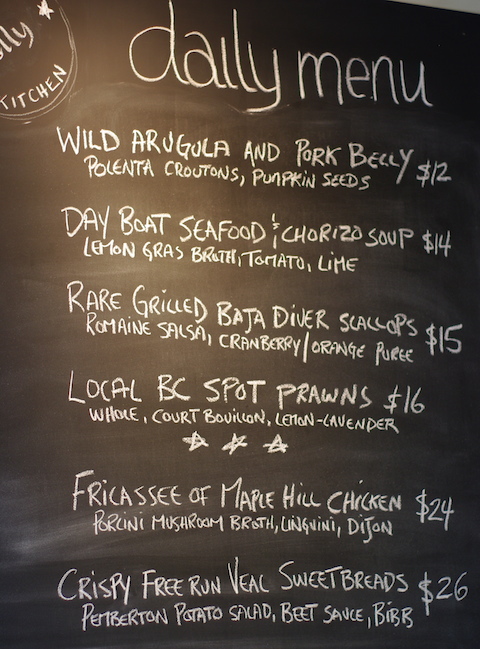 KITCHEN
daily menu
WILD ARUGULA AND PORK BELLY $12
POLENTA CROUTONS, PUMPKIN SEEDS
DAY BOAT SEAFOOD & CHORIZO SOUP $14
LEMON GRAS BROTH, TOMATO, LIME
RARE GRILLED BAJA DIVER SCALLOPS $15
ROMAINE SALSA, CRANBERRY/ORANGE PUREE
LOCAL BC SPOT PRAWNS $16
WHOLE, COURT BOUILLON, LEMON-LAVENDER
FRICASSEE OF MAPLE HILL CHICKEN $24
PORCINI MUSHROOM BROTH, LINGUINI, DIJON
CRISPY FREE RUN VEAL SWEETBREADS $26
PEMBERTON POTATO SALAD, BEET SAUCE, BIBB